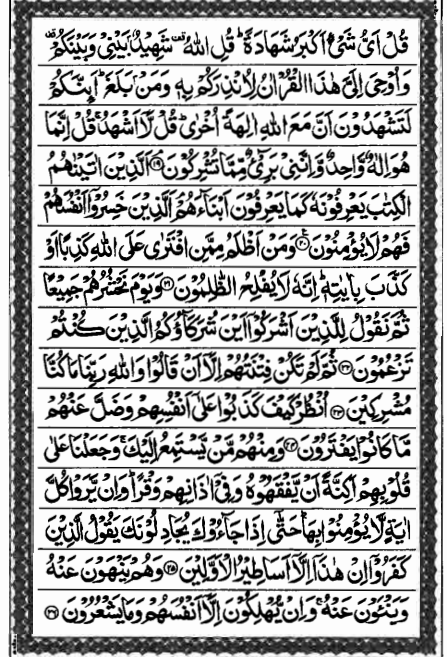 قُلْ اَىُّ شَىْءٍ اَكْبَرُ شَهَادَةً ؕ قُلِ اللّٰهُ ۟ۙ شَهِيْدٌۢ بَيْنِىْ وَبَيْنَكُمْ ۟
وَاُوْحِىَ اِلَىَّ هٰذَا الْقُرْاٰنُ لِاُنْذِرَكُمْ بِهٖ وَمَنْۢ بَلَغَ ؕ اَئِنَّكُمْ
لَتَشْهَدُوْنَ اَنَّ مَعَ اللّٰهِ اٰلِهَةً اُخْرٰى ؕ قُلْ لَّاۤ اَشْهَدُ ۚ قُلْ اِنَّمَا
هُوَ اِلٰهٌ وَّاحِدٌ وَّاِنَّنِىْ بَرِىْٓءٌ مِّمَّا تُشْرِكُوْنَ ۘ‏﴿۱۹﴾ اَلَّذِيْنَ اٰتَيْنٰهُمُ
الْكِتٰبَ يَعْرِفُوْنَهٗ كَمَا يَعْرِفُوْنَ اَبْنَآءَهُمْ ۘ اَلَّذِيْنَ خَسِرُوْۤا اَنْفُسَهُمْ
فَهُمْ لَا يُؤْمِنُوْنَ ﴿۲۰﴾ وَمَنْ اَظْلَمُ مِمَّنِ افْتَرٰى عَلَى اللّٰهِ كَذِبًا اَوْ
كَذَّبَ بِاٰيٰتِهٖ ؕ اِنَّهٗ لَا يُفْلِحُ الظّٰلِمُوْنَ ﴿۲۱﴾ وَيَوْمَ نَحْشُرُهُمْ جَمِيْعًا
ثُمَّ نَقُوْلُ لِلَّذِيْنَ اَشْرَكُوْۤا اَيْنَ شُرَكَآؤُكُمُ الَّذِيْنَ كُنْتُمْ
تَزْعُمُوْنَ ﴿۲۲﴾ ثُمَّ لَمْ تَكُنْ فِتْنَتُهُمْ اِلَّاۤ اَنْ قَالُوْا وَاللّٰهِ رَبِّنَا مَا كُنَّا
مُشْرِكِيْنَ ﴿۲۳﴾ اُنْظُرْ كَيْفَ كَذَبُوْا عَلٰٓى اَنْفُسِهِمْ وَضَلَّ عَنْهُمْ
مَّا كَانُوْا يَفْتَرُوْنَ ﴿۲۴﴾ وَمِنْهُمْ مَّنْ يَّسْتَمِعُ اِلَيْكَ ۚ وَجَعَلْنَا عَلٰى
قُلُوْبِهِمْ اَكِنَّةً اَنْ يَّفْقَهُوْهُ وَفِىْۤ اٰذَانِهِمْ وَقْرًا ؕ وَاِنْ يَّرَوْا كُلَّ
اٰيَةٍ لَّا يُؤْمِنُوْا بِهَا ؕ حَتّٰٓى اِذَا جَآءُوْكَ يُجَادِلُوْنَكَ يَقُوْلُ الَّذِيْنَ
كَفَرُوْۤا اِنْ هٰذَاۤ اِلَّاۤ اَسَاطِيْرُ الْاَوَّلِيْنَ ﴿۲۵﴾ وَهُمْ يَنْهَوْنَ عَنْهُ
وَيَنْئَوْنَ عَنْهُ ۚ وَاِنْ يُّهْلِكُوْنَ اِلَّاۤ اَنْفُسَهُمْ وَمَا يَشْعُرُوْنَ ﴿۲۶﴾